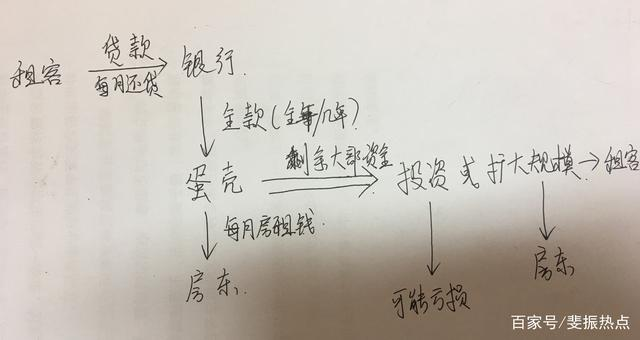 租客 贷款 银行
每月还贷
全款(全年/几年)
蛋壳 剩余大部资金 投资或扩大规模→租客
每月房租钱
房东 可能亏损 房东
百家号/斐振热点